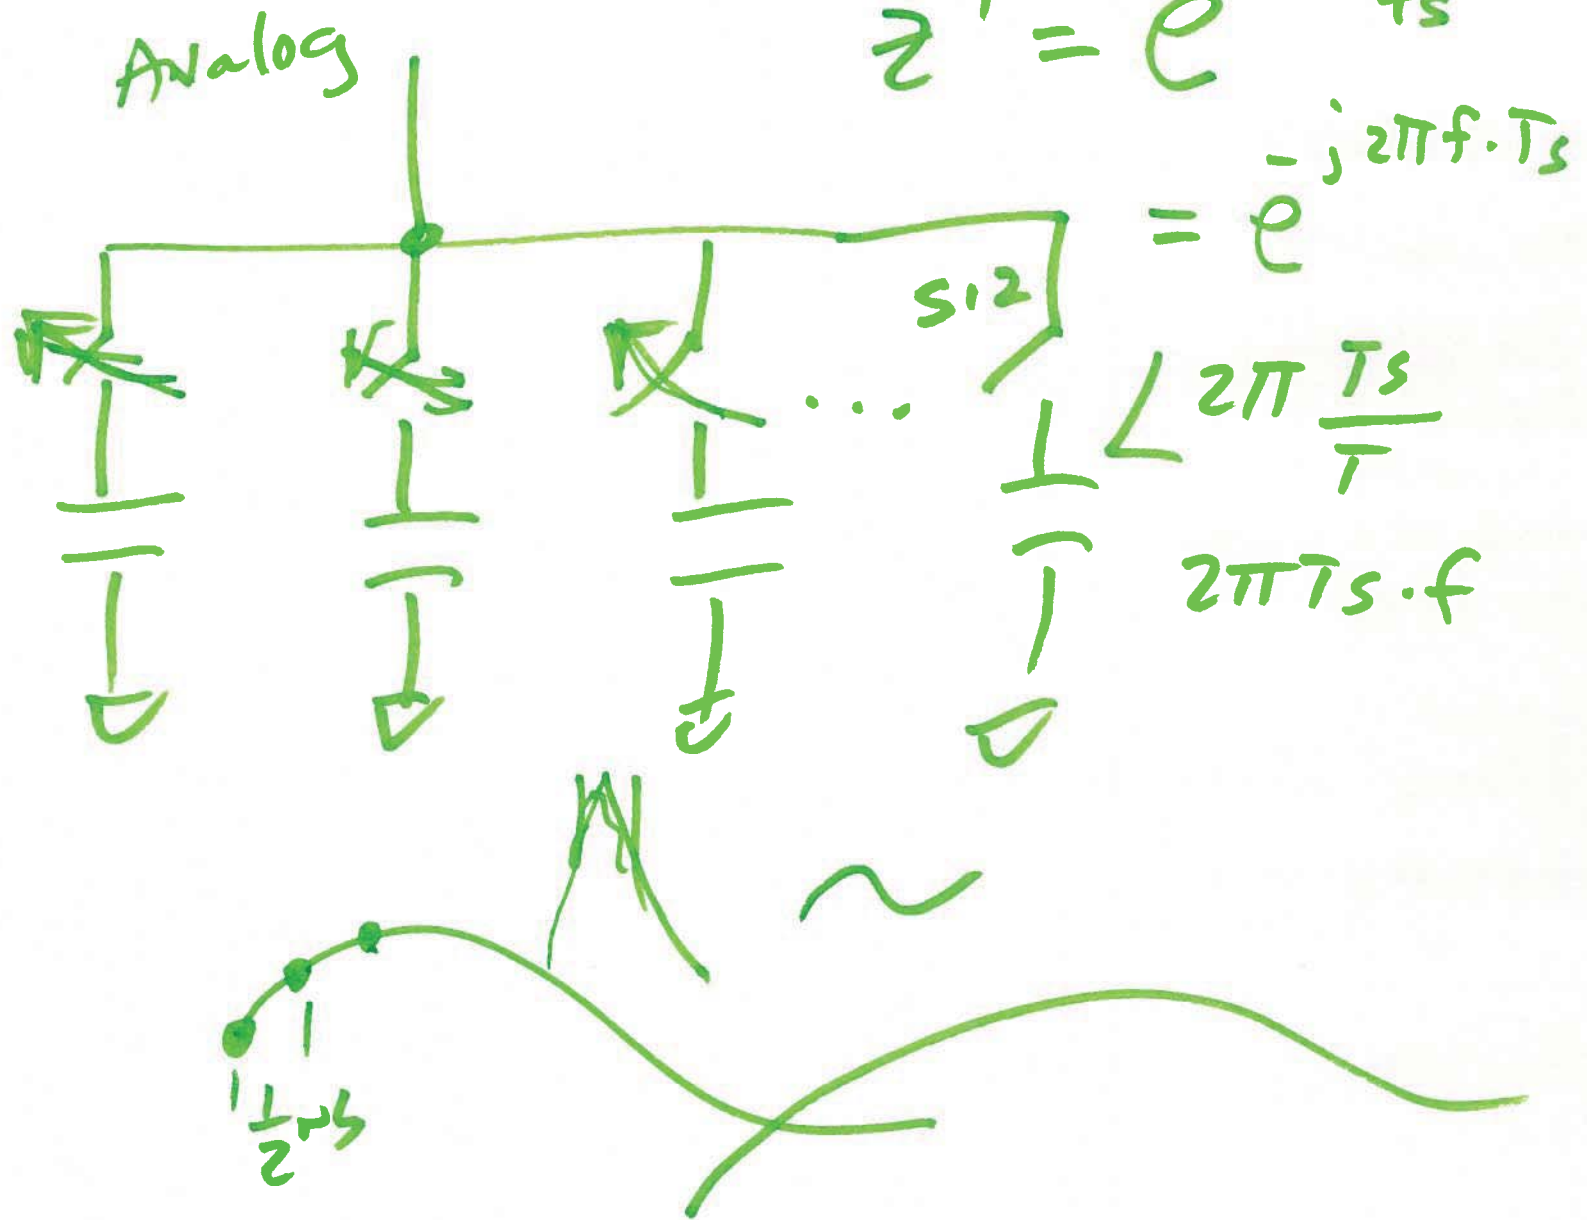 Analog
= e
= e^{-j2πf·Ts}
512
∠ 2π Ts/T
2πTs·f
...
1/2 ns